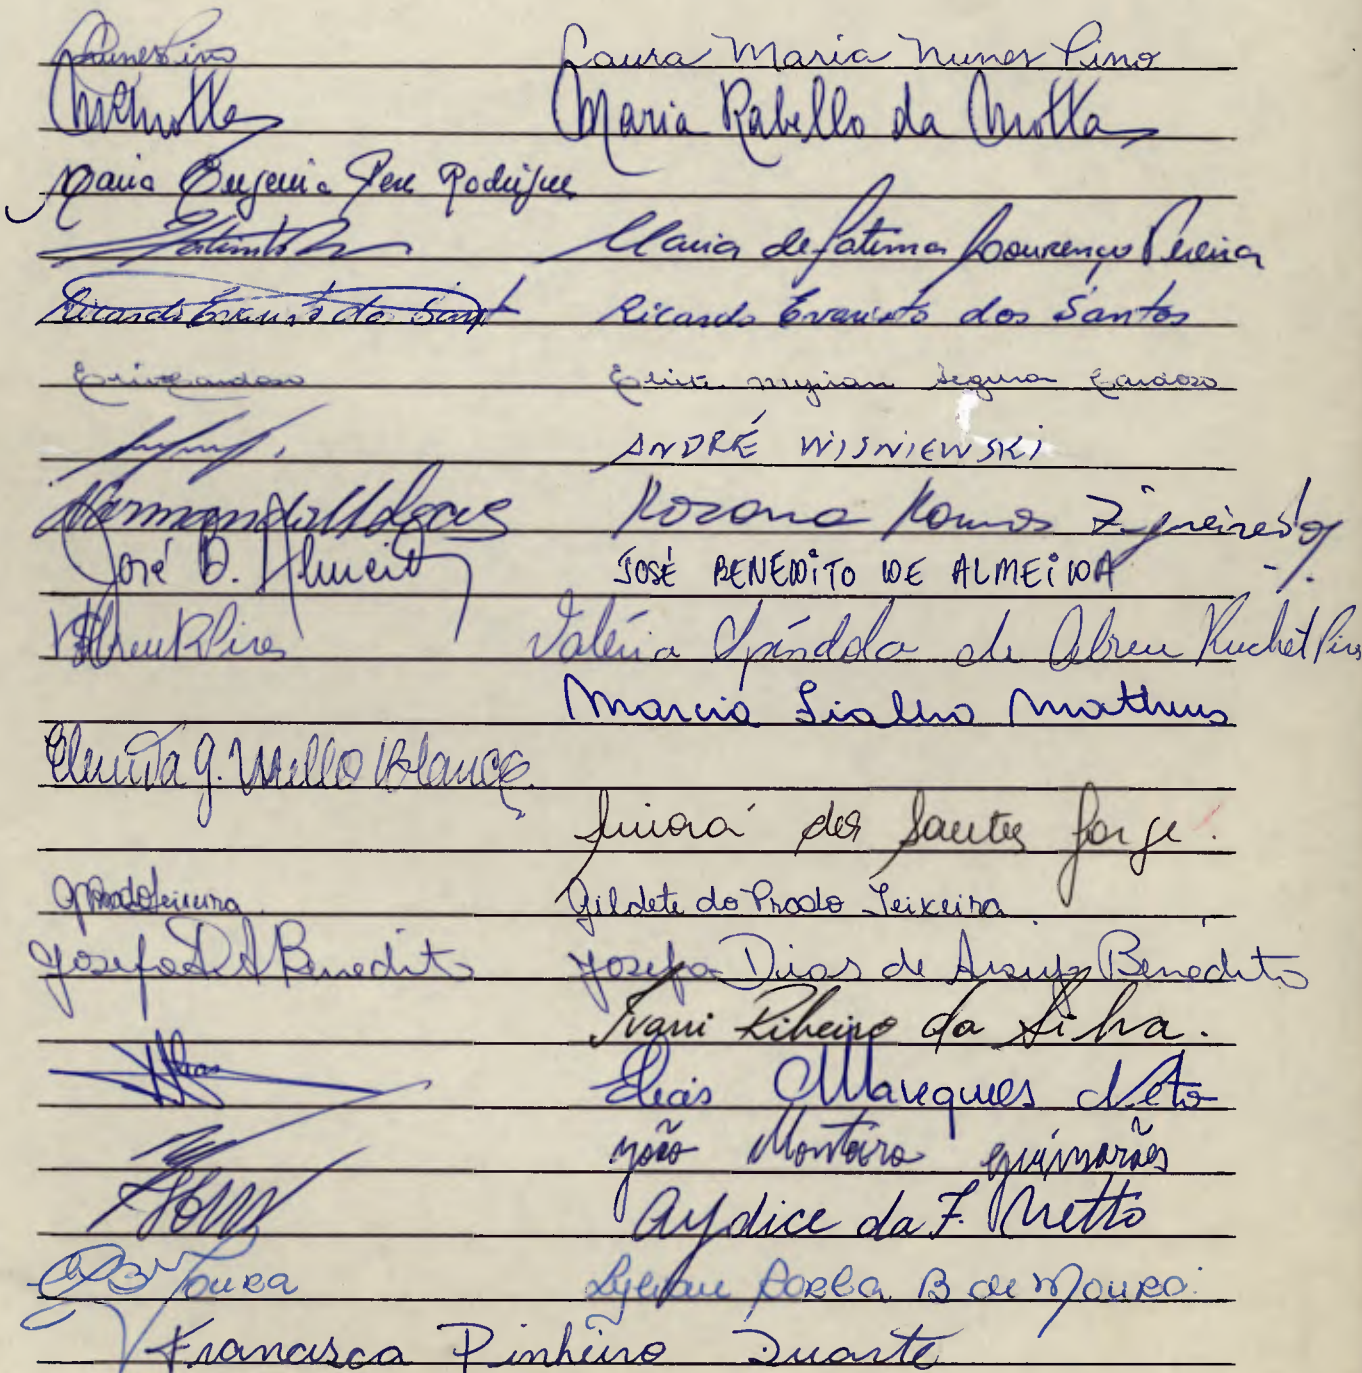 Laura Maria Nunes Pino
Maria Rabello da Motta
Maria Eugenia Rodrigues
Maria de Fatima Lourenço Pereira
Ricardo Evaristo dos Santos Ricardo Evaristo dos Santos
Segura Cardoso
ANDRÉ WISNIEWSKI
Rozana Ramos Figueiredo
José B. Almeida JOSÉ BENEDITO DE ALMEIDA
Valéria Spíndola de Abreu Ruchet Pires
Marcia Fialho Matheus
G. Mello Blanco
dos Santos Jorge.
GPradoTeixeira Gildete do Prado Teixeira
Josefa D A Benedito Josefa Dias de Araujo Benedito
Ivani Ribeiro da Silva.
Elias Elias Marques Neto
João Monteiro Guimarães
Aydice da F. Netto
Moura B de Moura
Francisca Pinheiro Duarte